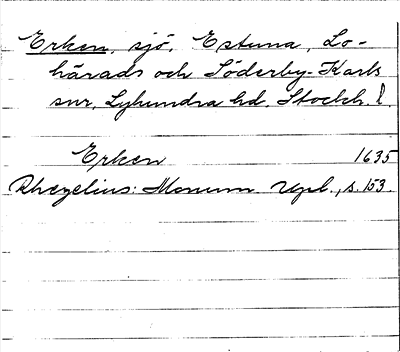 Erken, sjö, Estuna, Lo-
härads och Söderby-Karls
snr, Lyhundra hd. Stockh. l.
Erken 1635
Rhezelius: Monum. Upl., s. 153.